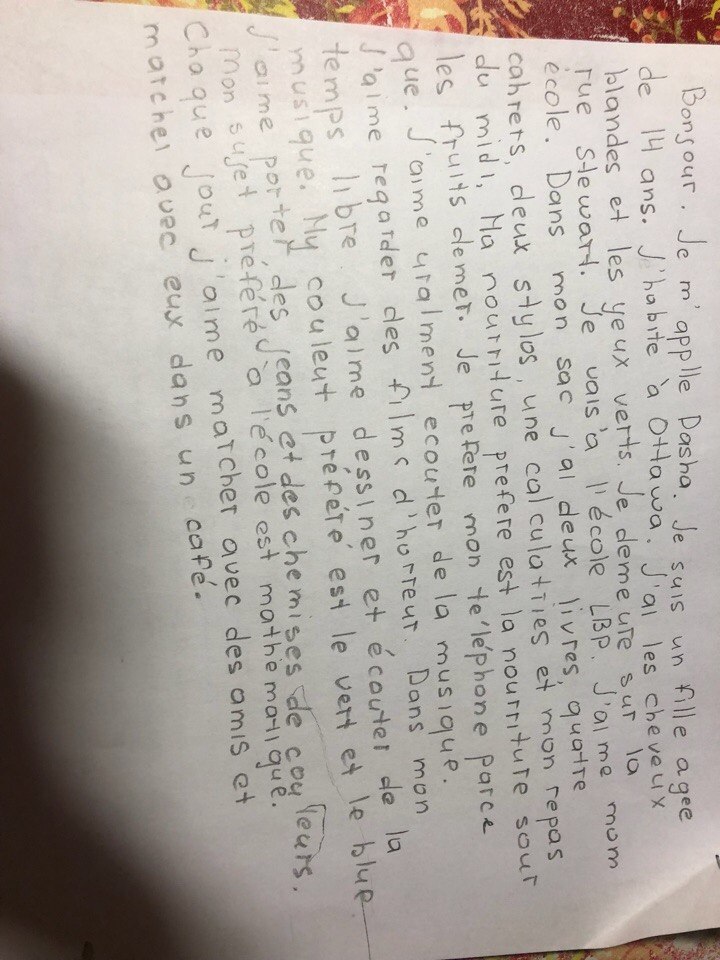 Bonjour. Je m'applle Dasha. Je suis un fille agee
de 14 ans. J'habite à Ottawa. J'ai les cheveux
blandes et les yeux verts. Je demeure sur la
rue Stewart. Je vais à l'école LBP. J'aime mom
école. Dans mon sac j'ai deux livres, quatre
cahrers, deux stylos, une calculatries et mon repas
du midi. Ma nourriture prefere est la nourriture sour
les fruits demer. Je prefere mon téléphone parce
que. J'aime uralment ecouter de la musique.
J'aime regarder des films d'horreur. Dans mon
temps libre j'aime dessiner et écouter de la
musique. My couleut préféré est le vert et le blue
J'aime porter des jeans et des chemises de couleurs.
Mon sujet préféré à l'école est mathematique.
Chaque jour j'aime marcher avec des amis et
marcher avec eux dans un café.